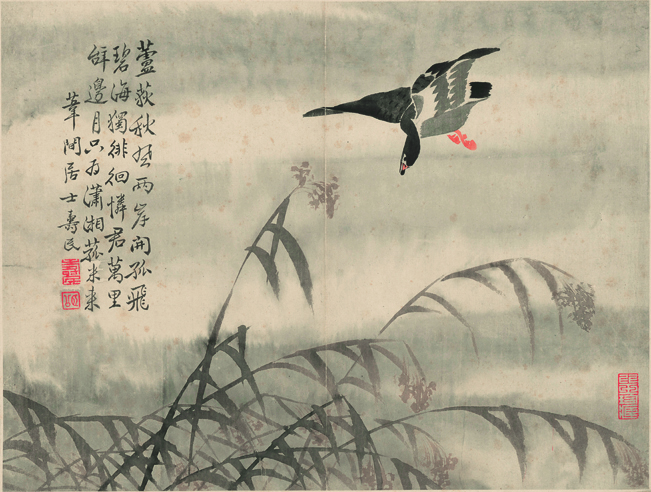 蘆荻秋花两岸開孤飛
碧海獨徘徊憐君萬里
辭邊月只为瀟湘菰米来
葦間居士壽民